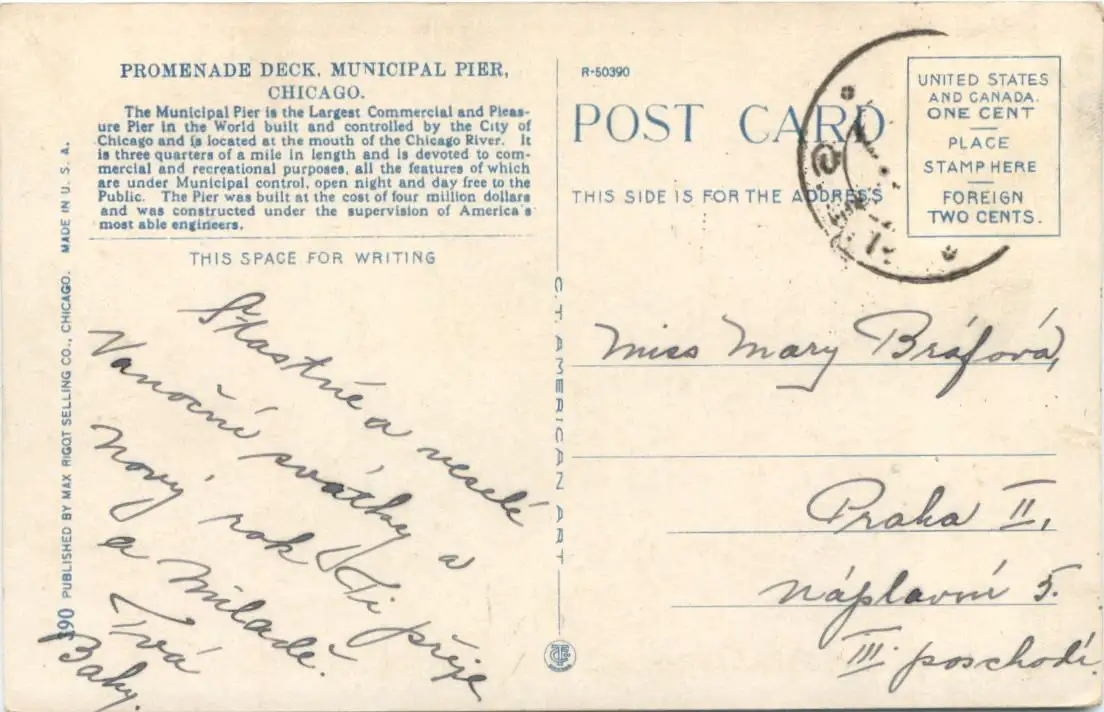 PROMENADE DECK, MUNICIPAL PIER,
CHICAGO.
The Municipal Pier is the Largest Commercial and Pleas-
ure Pier in the World built and controlled by the City of
Chicago and is located at the mouth of the Chicago River. It
is three quarters of a mile in length and is devoted to com-
mercial and recreational purposes, all the features of which
are under Municipal control, open night and day free to the
Public. The Pier was built at the cost of four million dollars
and was constructed under the supervision of America's
most able engineers.
THIS SPACE FOR WRITING
Šťastné a veselé
Vanoční svátky a
nový rok Ti přeje
a Miladě.
Tvá
Baby.
390 PUBLISHED BY MAX RIGOT SELLING CO., CHICAGO. MADE IN U. S. A.
C. T. AMERICAN ART
R-50390
POST CARD
THIS SIDE IS FOR THE ADDRESS
UNITED STATES
AND CANADA.
ONE CENT
PLACE
STAMP HERE
FOREIGN
TWO CENTS.
Miss Mary Bráfová,
Praha II,
Náplavní 5.
III. poschodí.